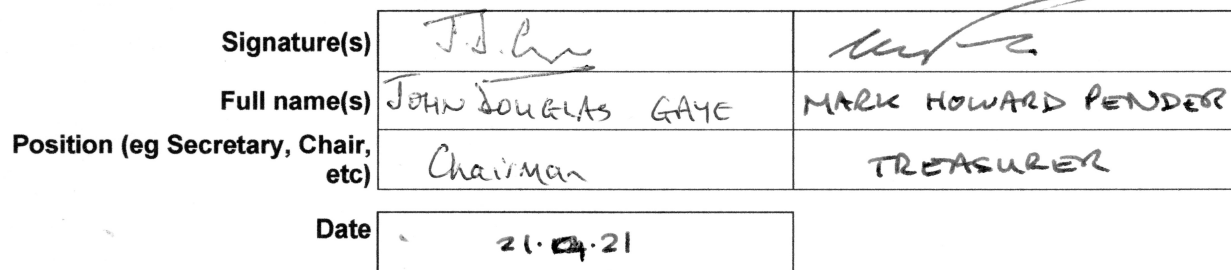 Signature(s)
Full name(s) JOHN DOUGLAS GAYE MARK HOWARD PENDER
Position (eg Secretary, Chair,
etc) Chairman TREASURER
Date 21.04.21